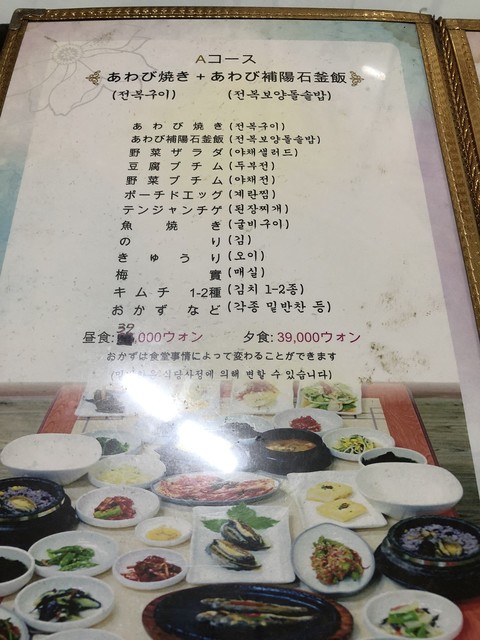 Aコース
あわび焼き + あわび補陽石釜飯
(전복구이) (전복보양돌솥밥)
あわび焼き (전복구이)
あわび補陽石釜飯 (전복보양돌솥밥)
野菜サラダ (야채샐러드)
豆腐プチム (두부전)
野菜プチム (야채전)
ポーチドエッグ (계란찜)
テンジャンチゲ (된장찌개)
魚焼き (굴비구이)
のり (김)
きゅうり (오이)
梅實 (매실)
キムチ 1-2種 (김치 1-2종)
おかずなど (각종 밑반찬 등)
昼食: 39,000ウォン 夕食: 39,000ウォン
おかずは食堂事情によって変わることができます
식당사정에 의해 변할 수 있습니다)